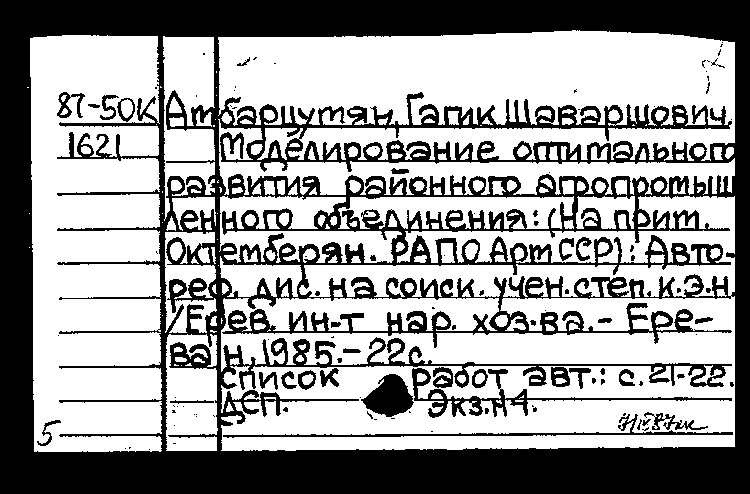 87-50К Атбарцутян, Гагик Шаваршович.
1621 Моделирование оптимального
развития районного агропромыш
ленного объединения: (На прит.
Октемберян. РАПО АрмССР): Авто-
реф. дис. на соиск. учен. степ. к.э.н.
/Ерев. ин-т нар. хоз-ва. - Ере-
ван, 1985. - 22 с.
список работ авт.: с. 21-22.
ДСП. Экз. н4.
5